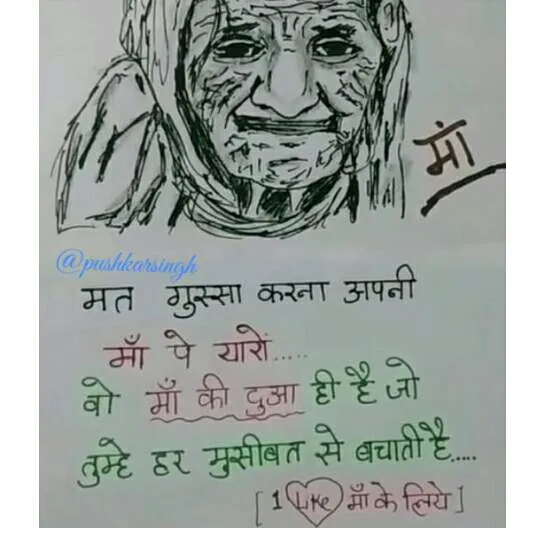 माँ
@pushkarsingh
मत गुस्सा करना अपनी
माँ पे यारों.....
वो माँ की दुआ ही है जो
तुम्हे हर मुसीबत से बचाती है....
[1 Like माँ के लिये]